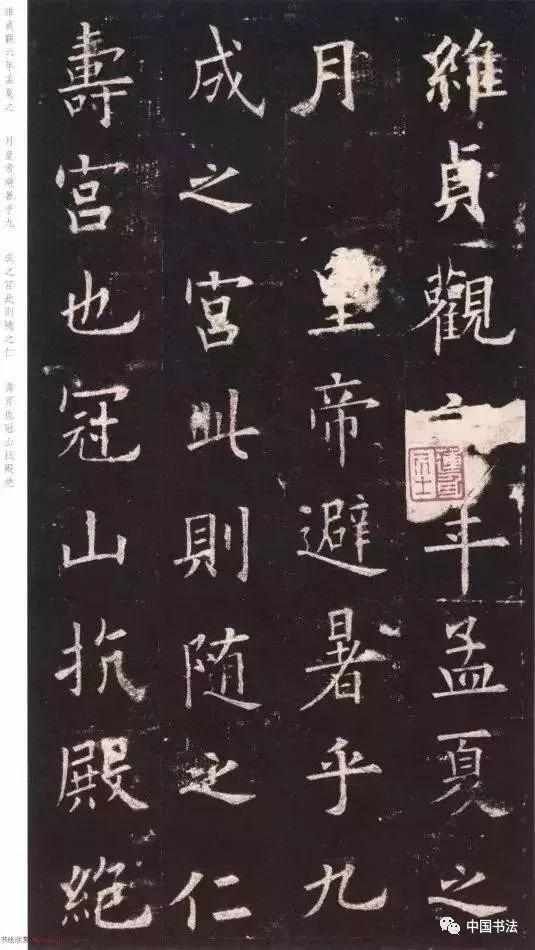 維貞觀六年孟夏之
月 皇帝避暑乎九
成之宮此則随之仁
壽宮也冠山抗殿絶
维贞观六年孟夏之 月皇帝避暑乎九 成之宫此则随之仁 寿宫也冠山抗殿绝
中国书法